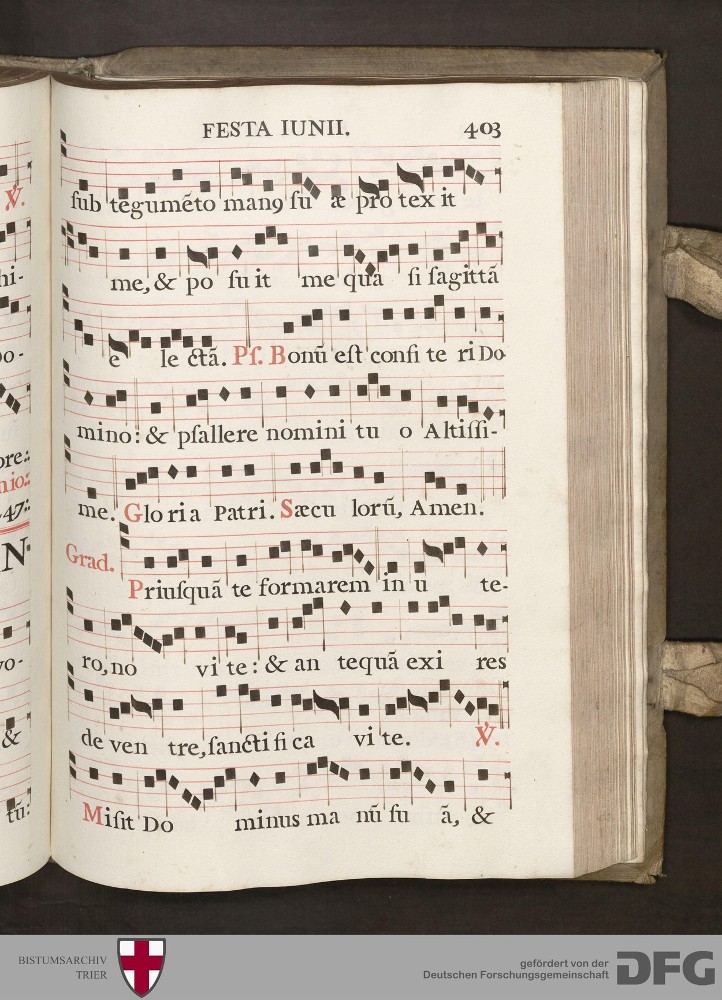 FESTA IUNII. 403
sub tegumēto man9 su æ pro tex it
me, & po su it me quā si sagittā
e le ctā. Ps. Bonū est confi te ri Do
mino: & psallere nomini tu o Altissi-
me. Gloria Patri. Sæcu lorū, Amen.
Grad.
Priusquā te formarem in u te-
ro, no vi te: & an tequā exi res
de ven tre, sancti fi ca vi te. ℣.
Misit Do minus ma nū su ā, &
℣.
hi-
oo-
ore:
nio:
47:
N
vo-
&
tū:
BISTUMSARCHIV
TRIER
gefördert von der
Deutschen Forschungsgemeinschaft
DFG